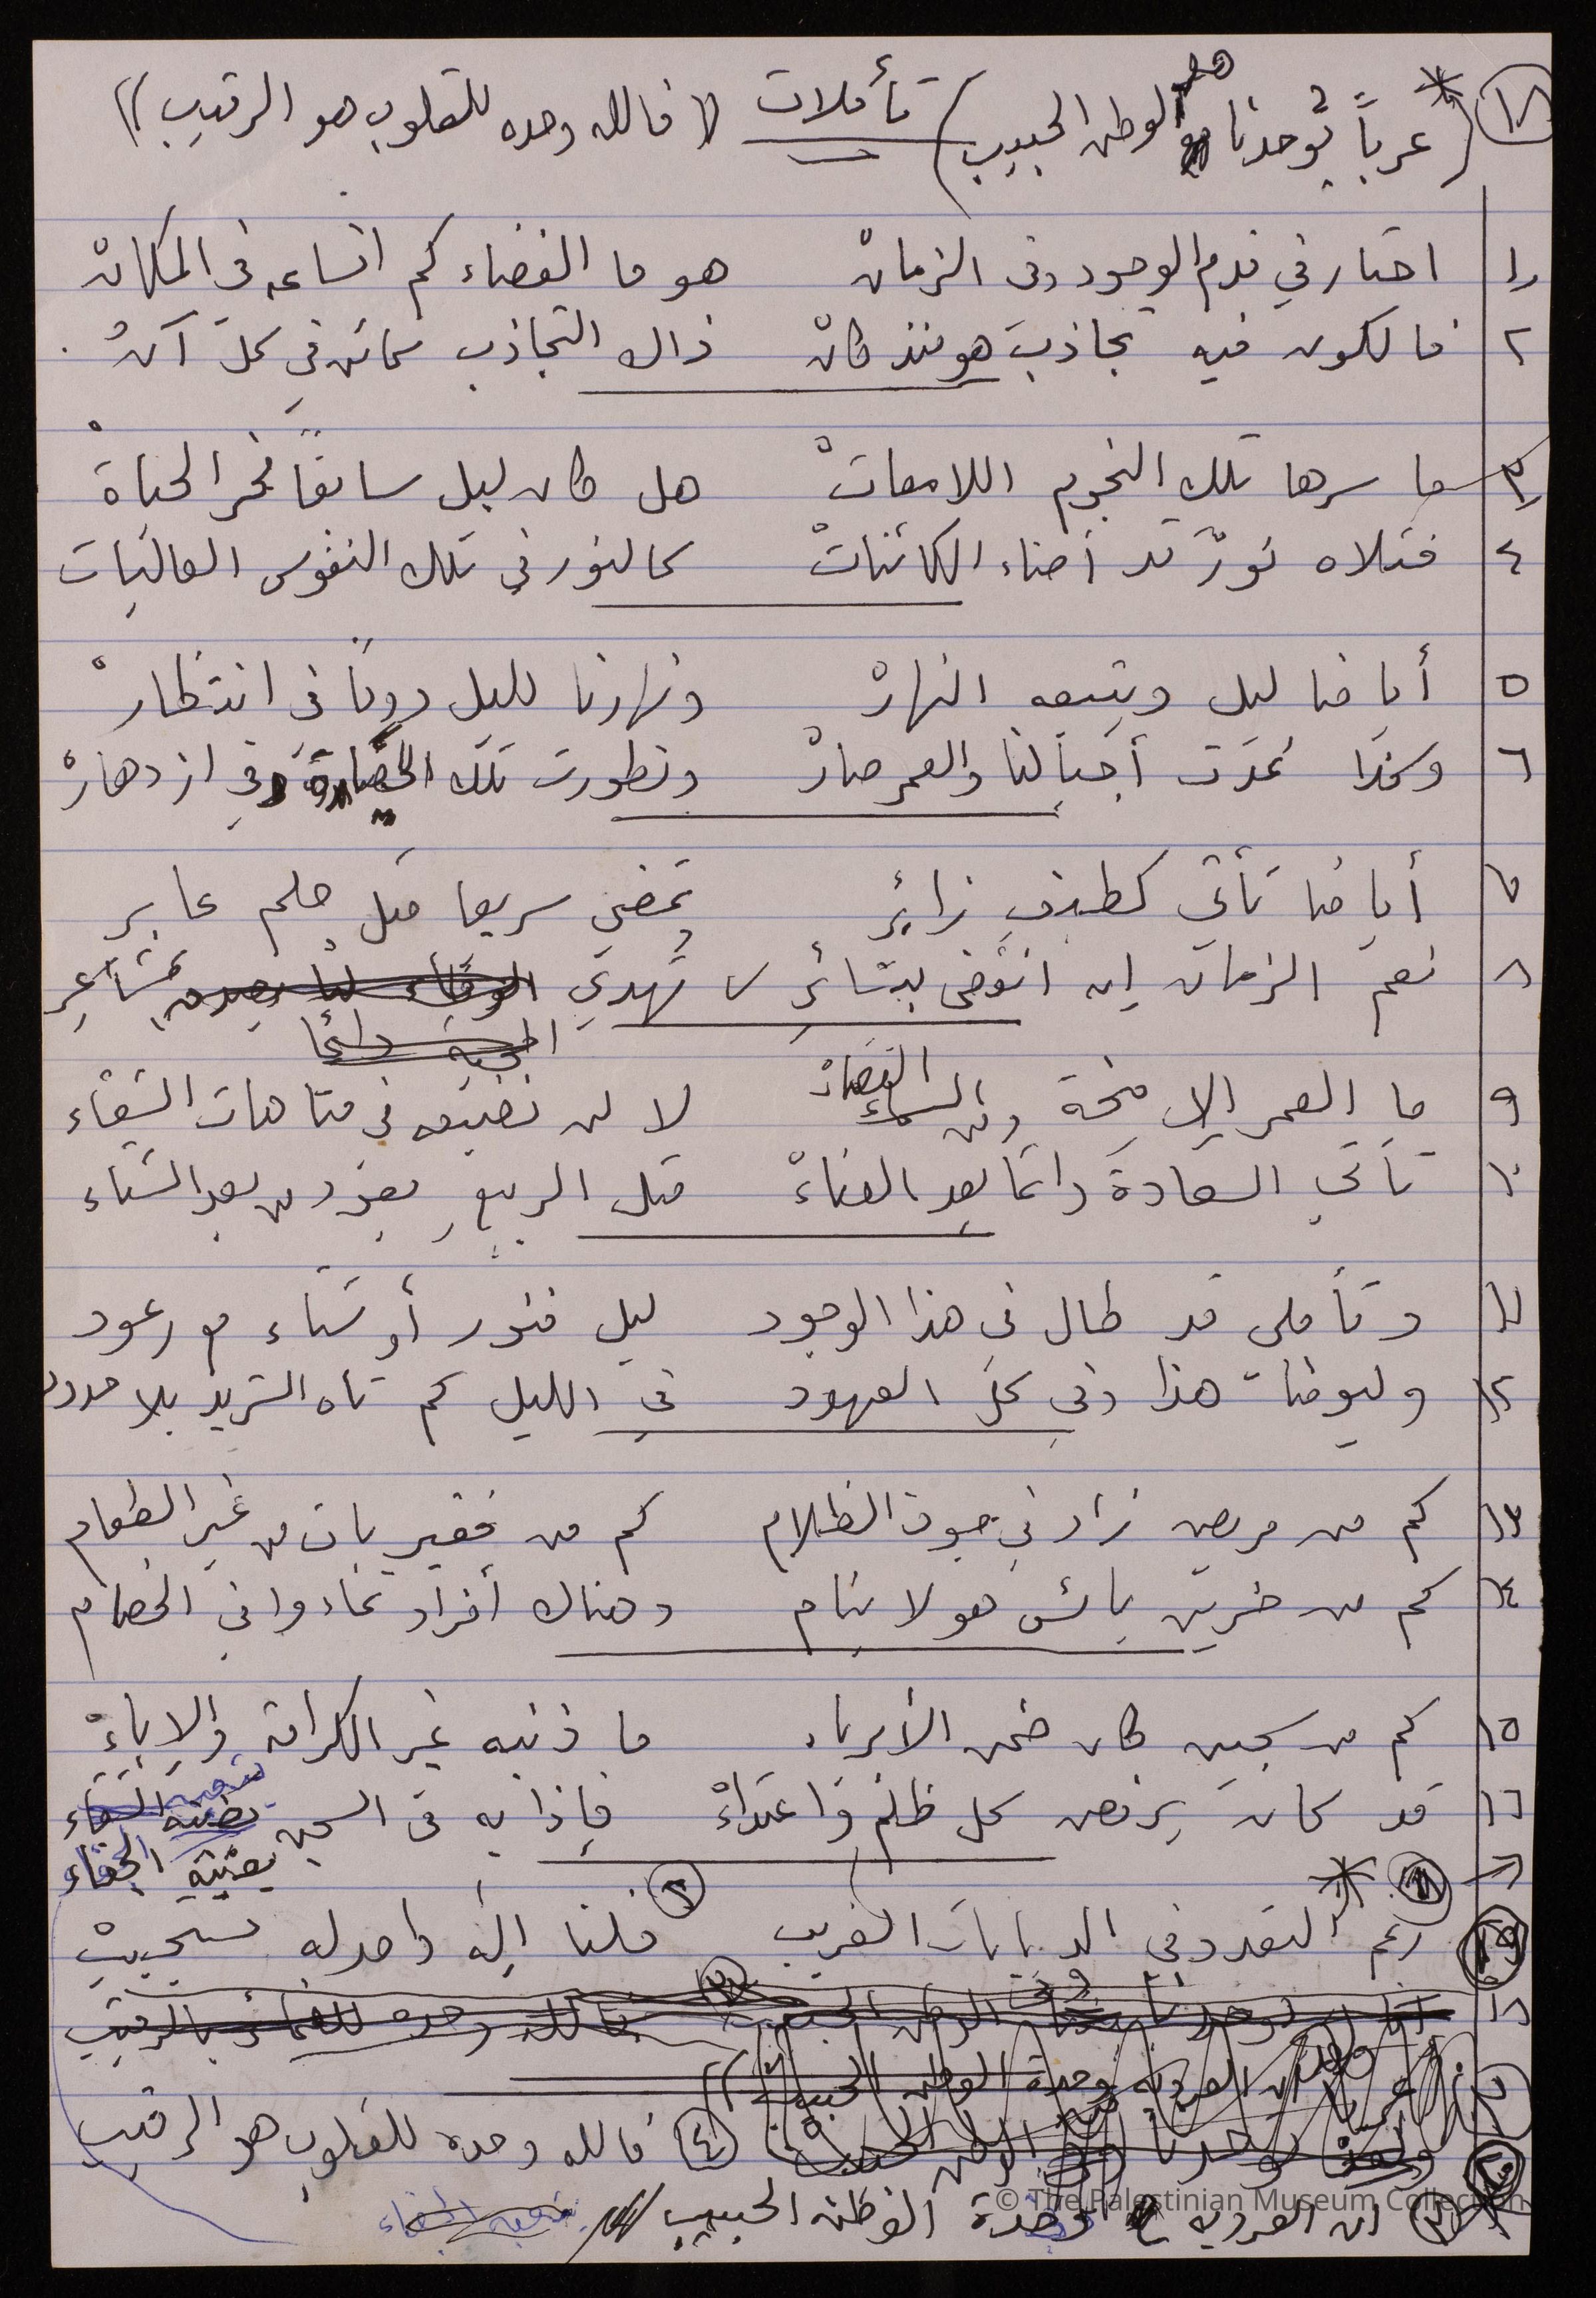 ١٨ * (عرباً توحدنا هو الوطن الحبيب) تأملات ((فالله وحده للقلوب هو الرقيب))
١ احتار في قدم الوجود وفى الزمانْ هو ما الفضاء كم اتساعه في المكانْ
٢ فالكون فيه تجاذبَ هو منذ كانْ ذاك التجاذب كائن في كلّ آنْ
٣ ما سرها تلك النجوم اللامعاتْ هل كان ليل سابقاً فجر الحياةْ
٤ فتلاه نورٌ قد أضاء الكائناتْ كالنور في تلك النفوس العاليات
٥ أيامنا ليل ويتبعه النهارْ ونهارنا لليل دوماً فى انتظارْ
٦ وكذا تحدّت أجيالنا والعمر صارْ وتطورت تلك الحضارة في ازدهارْ
٧ أيامنا تأتي كطيف زائرِ تمضي سريعا مثل حلم عابر
٨ نعم الزمان إن انقضى ببشائر تهدي المحبة دائما بمشاعر
٩ ما العمر إلا منحة ومن السماء لا لن نضيعه في متاهات الشقاء
١٠ تأتي السعادة دائما بعد العناءْ مثل الربيع يعود من بعد الشتاء
١١ وتأملى قد طال في هذا الوجود ليل فنور أو شتاء مع رعود
١٢ وليومنا هذا وفي كل العهود في الليل كم تاه الشريد بلا حدود
١٣ كم من مريض زاد في جوف الظلام كم من فقير بات من غير الطعام
١٤ كم من حزين بائس هو لا ينام وهناك أفراد تمادوا في الخصام
١٥ كم من سجين كان ضمن الأبرياء ما ذنبه غير الكرامة والإباءْ
١٦ قد كان يرفض كل ظلم واعتداءْ فإذا به في السجن يضنيه الشقاء
الجفاء
رغم التعدد في الديانات الغريب ٢ فلنا إله واحد له نستجيبْ
١٨ الوطن فالله وحده بالرقيب
العروبة وحدة الوطن الحبيب
٤ فالله وحده للقلوب هو الرقيب
٣ ان العروبة وحدة الوطن الحبيب
© The Palestinian Museum Collection